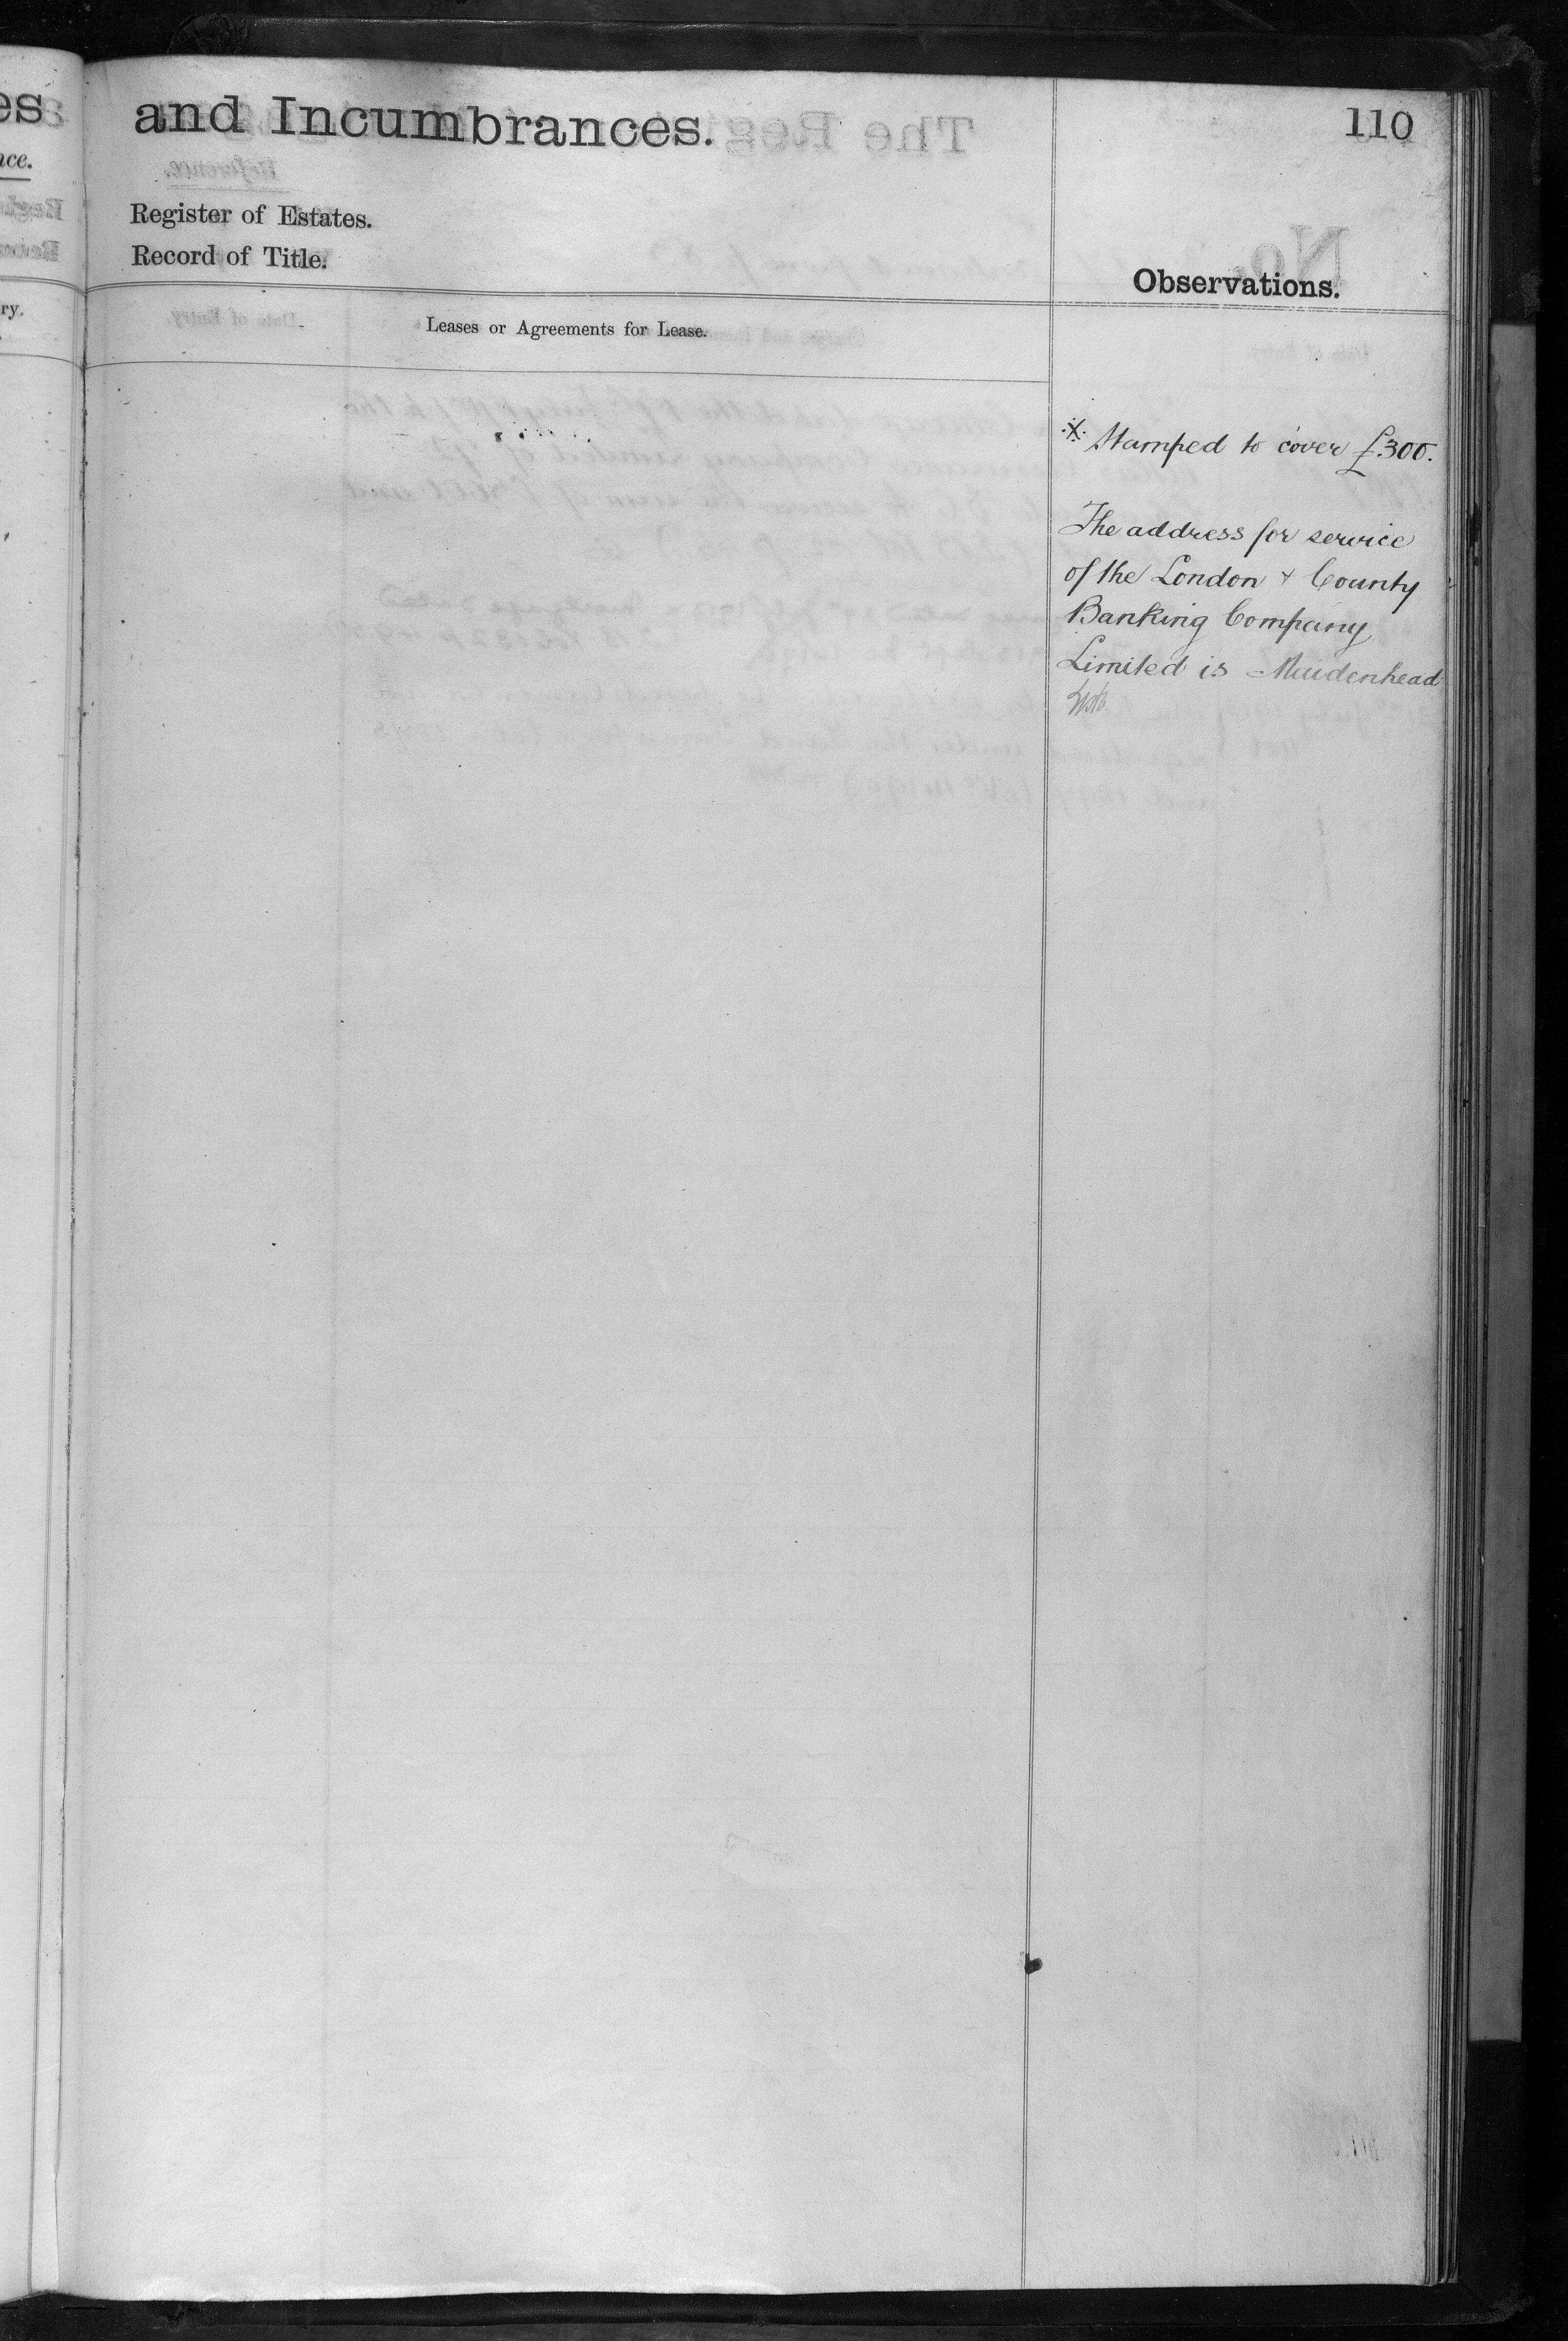 es
and Incumbrances.
110
nce.
Register of Estates.
Record of Title.
Observations.
ry.
Leases or Agreements for Lease.
※ Stamped to cover £300.
The address for service
of the London & County
Banking Company
Limited is Maidenhead